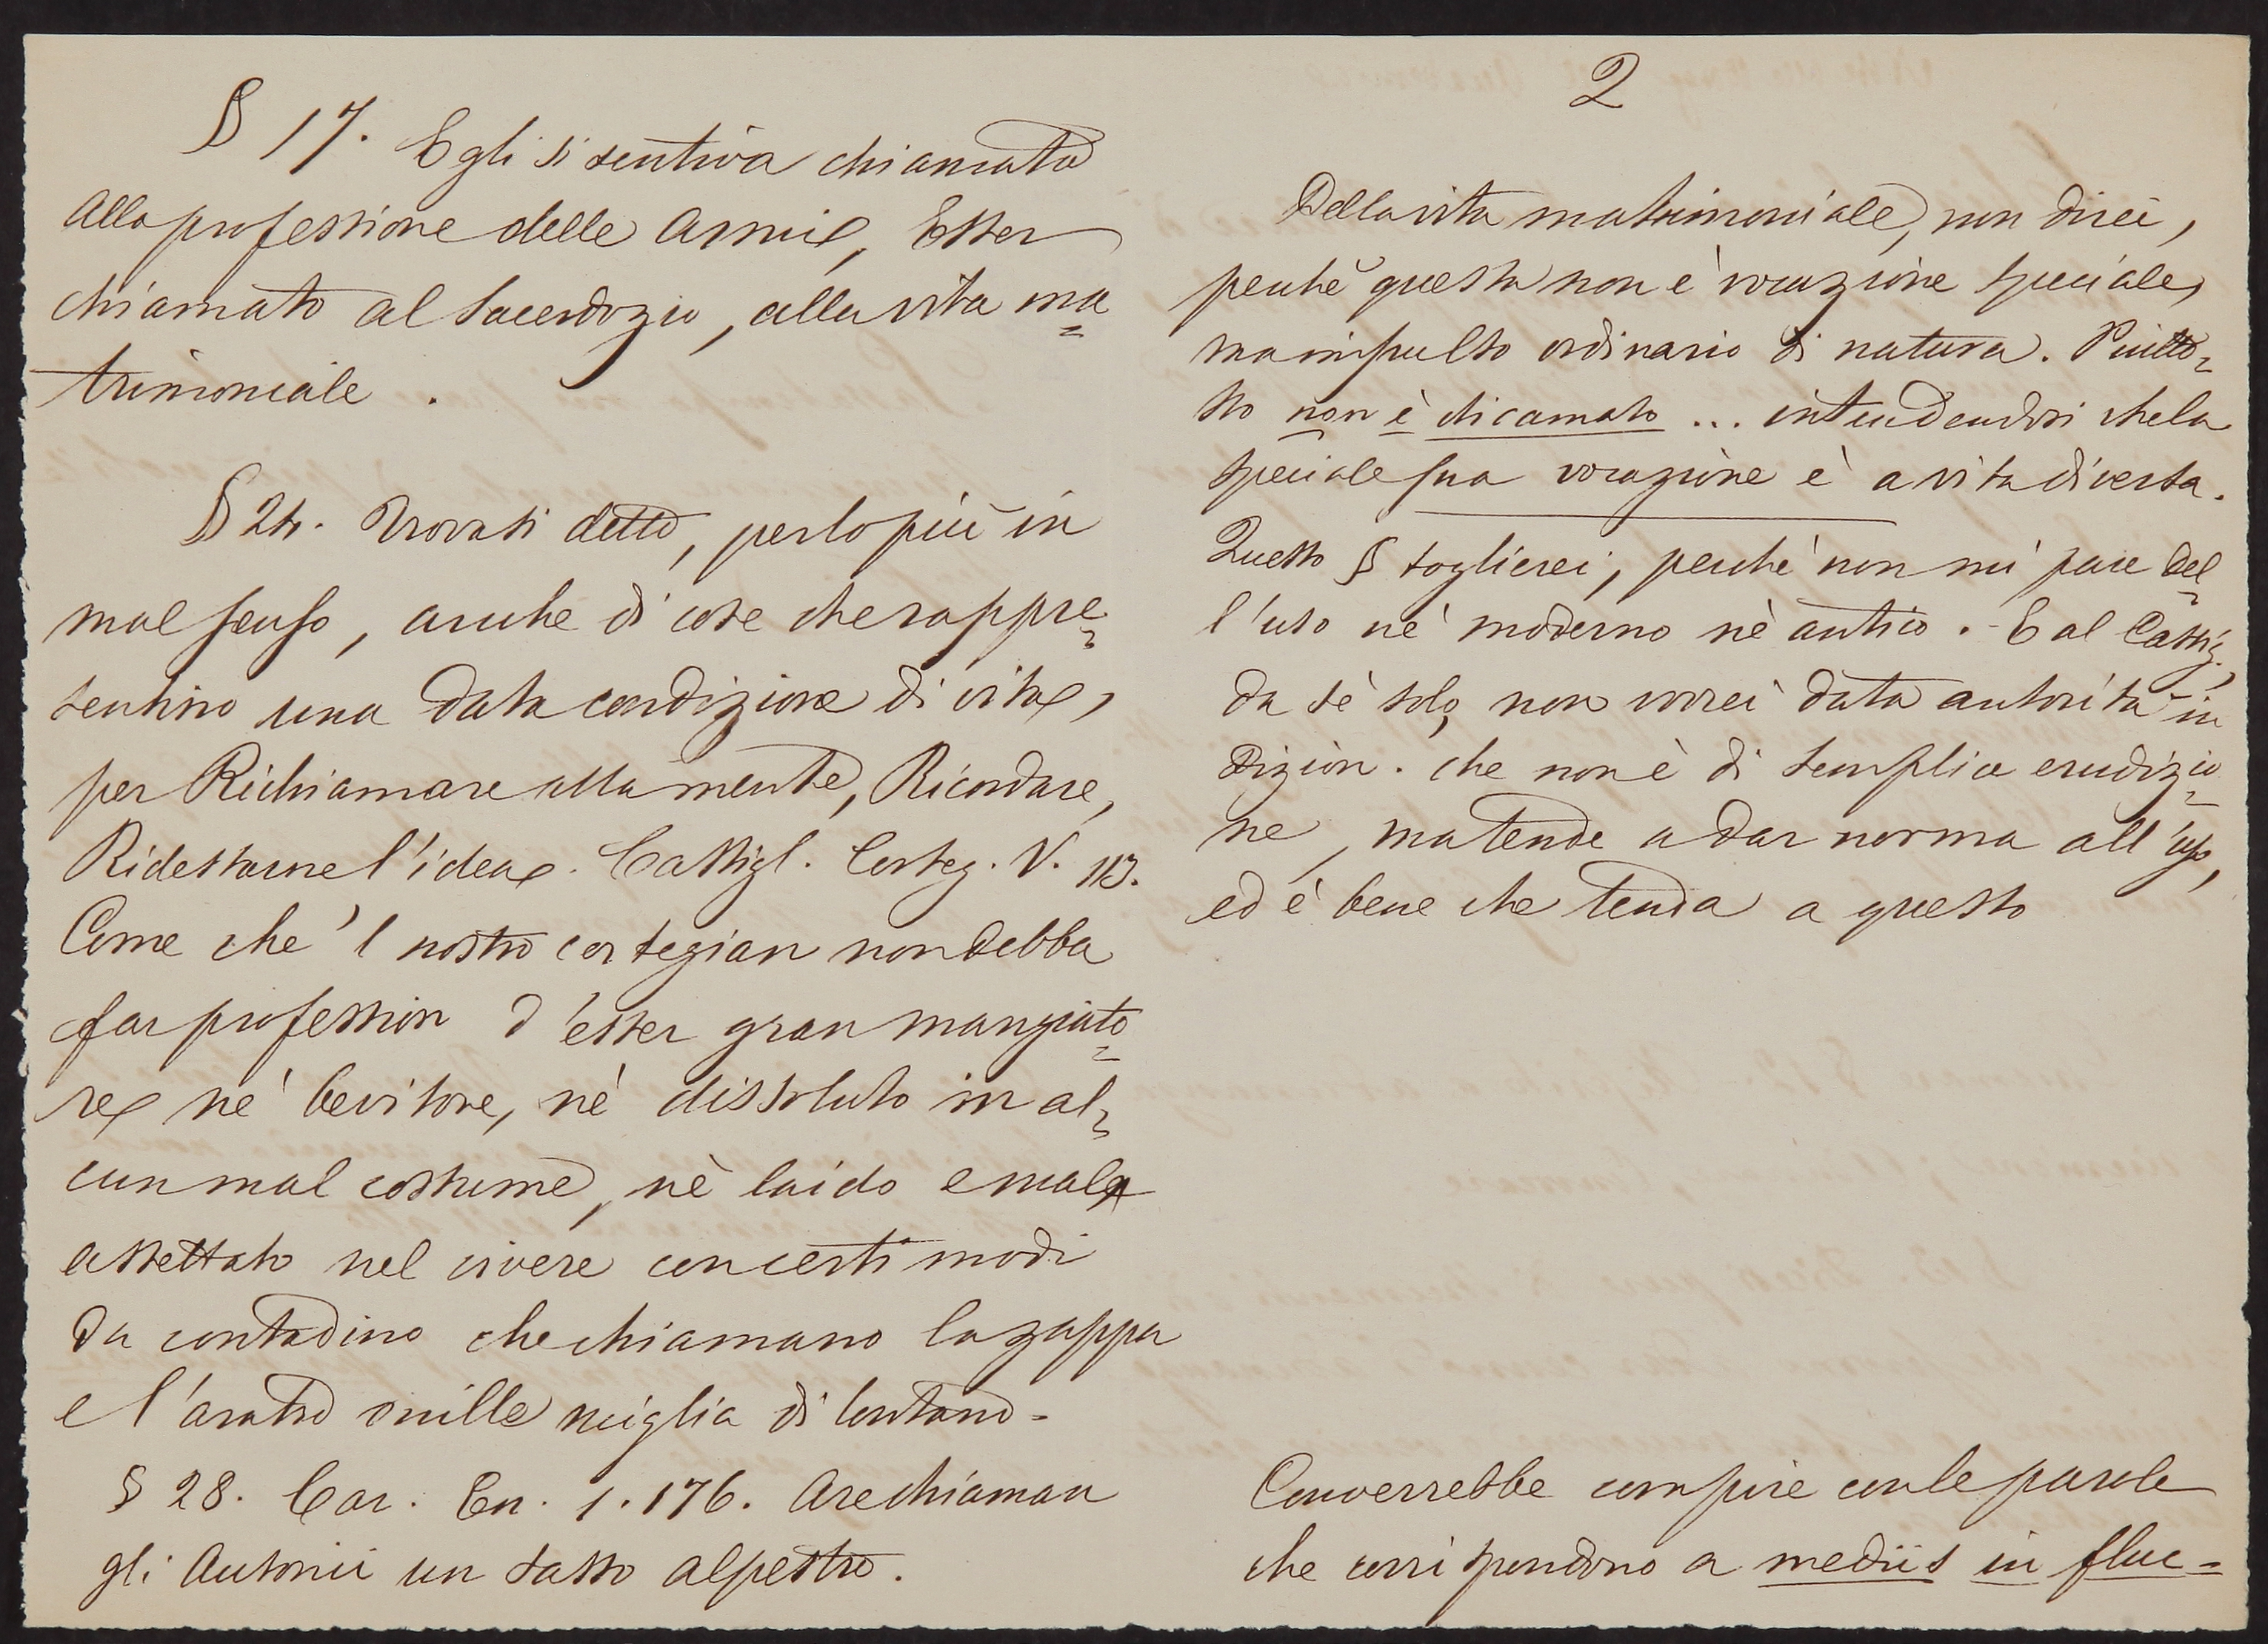 § 17. Egli si sentiva chiamato
alla professione delle armi, Esser
chiamato al sacerdozio, alla vita ma=
trimoniale.
§ 24. Trovasi detto, per lo più in
mal senso, anche di cose che rappre=
sentino una data condizione di vita,
per Richiamare alla mente, Ricordare,
Ridestarne l'idea. Castigl. Corteg. V. 113.
Come che 'l nostro cortegian non debba
far profession d'esser gran mangiato=
re nè bevitore, nè dissoluto in al=
cun mal costume, nè laido e mal
assettato nel vivere con certi modi
da contadino che chiamano la zappa
e l'aratro mille miglia di lontano.
§ 28. Car. En. 1. 176. Are chiaman
gli Autonii un sasso alpestro.
2
Della vita matrimoniale, non direi,
perchè questa non è vocazione speciale,
ma impulso ordinario di natura. Piutto=
sto non è chiamato ... intendendosi che la
speciale sua vocazione è a vita diversa.
Questo § toglierei, perchè non mi pare del=
l'uso nè moderno nè antico. E al Castig.,
da sè solo, non vorrei data autorità in
Dizion. che non è di semplice erudizio=
ne, ma tende a dar norma all'uso,
ed è bene che tenda a questo
Converrebbe compire con le parole
che corrispondono a mediis in fluc=